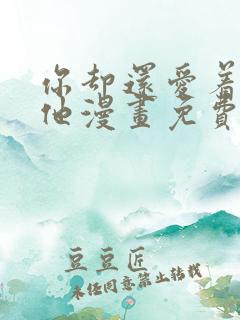 你却還愛着
他漫畫免費
豆豆匠
未任同意禁止转载